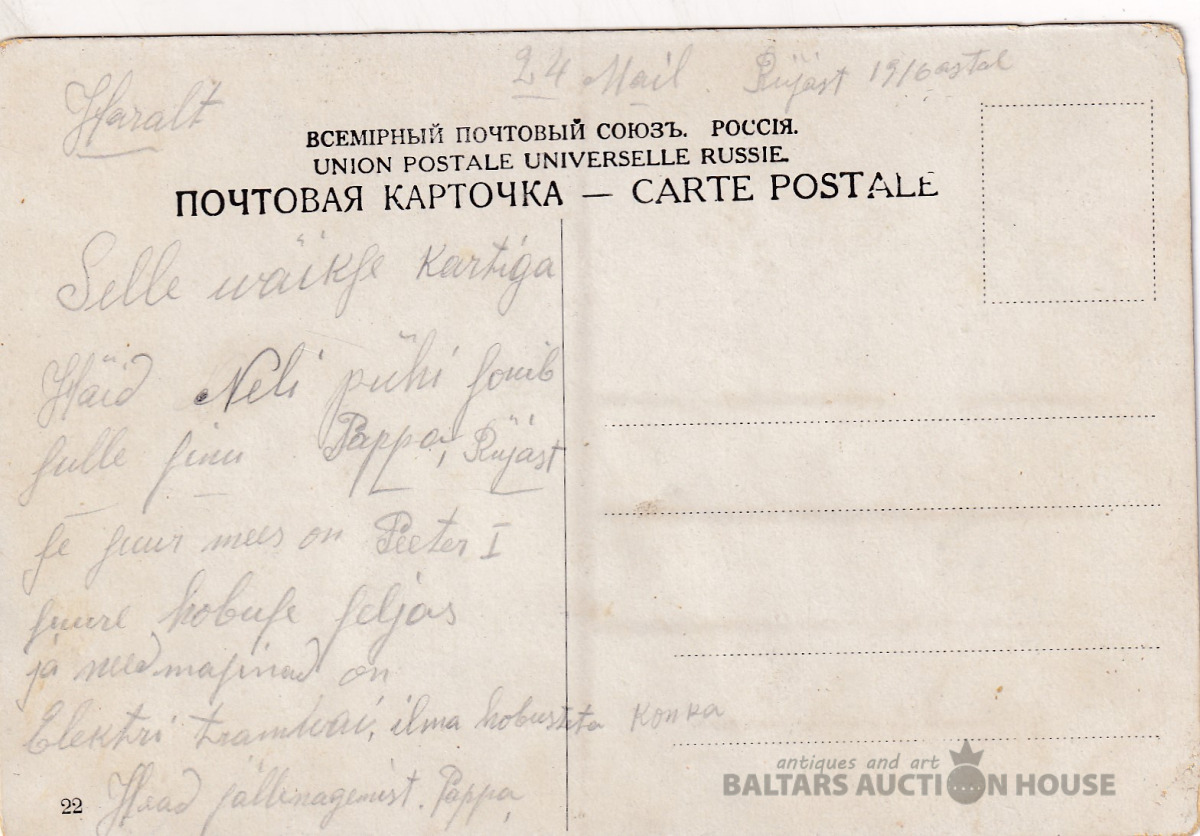 24 Mail. Rüjäst 1916 astal
Haralt
ВСЕМІРНЫЙ ПОЧТОВЫЙ СОЮЗЪ. РОССІЯ.
UNION POSTALE UNIVERSELLE RUSSIE.
ПОЧТОВАЯ КАРТОЧКА — CARTE POSTALE
Selle wäikse kartiga
Häid Neli pühi sowib
sulle sinu Pappa, Rüjäst
se suur mees on Peeter I
suure hobuse seljas
ja need masinad on
Elektri tramwai, ilma hobusteta Konka
Head jällenägemist. Pappa
22
antiques and art
BALTARS AUCTION HOUSE